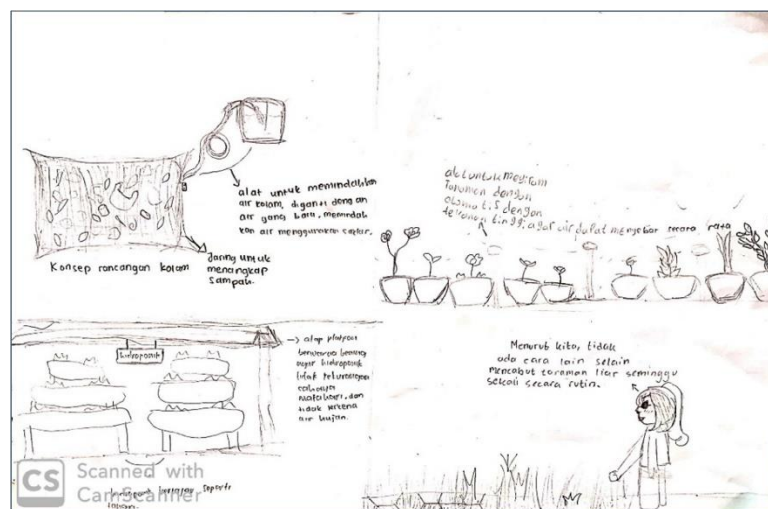 alat untuk memindahkan
air kolam, diganti dengan
air yang baru, memindah
kan air menggunakan saklar.
Konsep rancangan kolam
Jaring untuk
menangkap
sampah.
alat untuk menyiram
Tanaman dengan
otomatis dengan
tekanan tinggi, agar air dapat menyebar secara rata
hidroponik
atap plafon
berwarna bening
agar hidroponik
tidak kekurangan
cahaya
matahari, dan
tidak terkena
air hujan.
seperti
Menurut kita, tidak
ada cara lain selain
mencabut tanaman liar seminggu
sekali secara rutin.
CS Scanned with
CamScanner